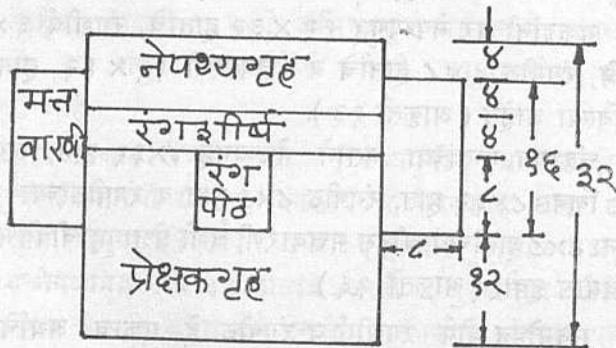 नेपथ्यगृह
मत्त
वारणी
रंगशीर्ष
रंग
पीठ
प्रेक्षकगृह
४
४
४
८
१२
१६
३२
८